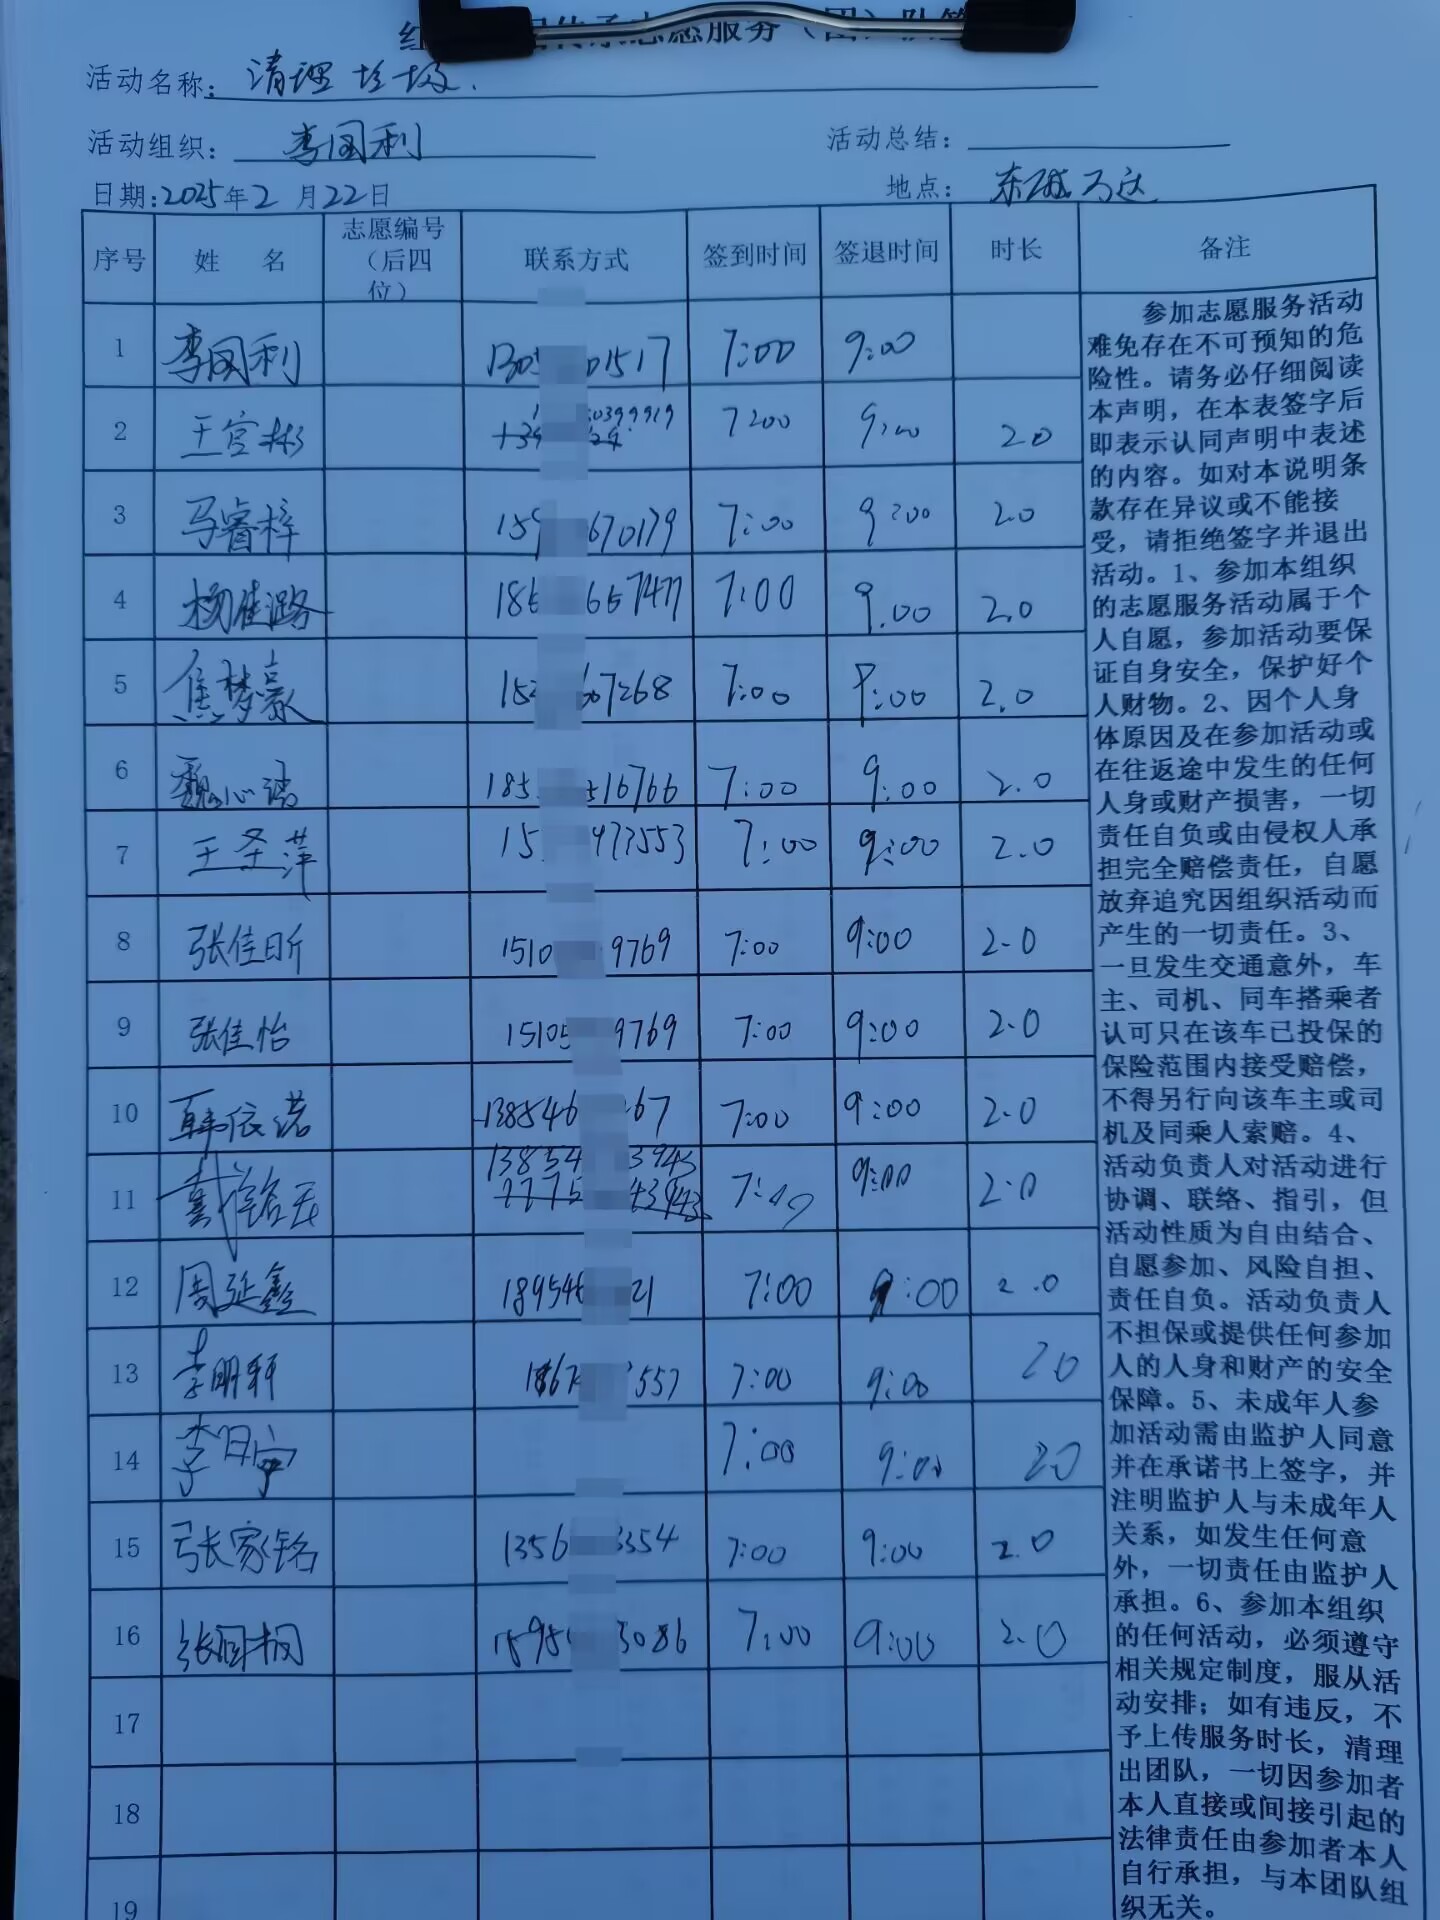 传承志愿服务（团）队签
活动名称：清理垃圾.
活动组织：李国利 活动总结：
日期：2025年2月22日 地点：
序号 姓 名 志愿编号（后四位） 联系方式 签到时间 签退时间 时长 备注
1 李国利 01517 7:00 9:00
2 王官彬 0399919 7:00 9:00 2.0
3 马睿梓 159 670179 7:00 9:00 2.0
4 杨佳潞 186 657477 7:00 9.00 2.0
5 焦梦豪 07268 7:00 9:00 2.0
6 魏心 185 516766 7:00 9:00 2.0
7 王圣萍 15 473553 7:00 9:00 2.0
8 张佳昕 1510 9769 7:00 9:00 2.0
9 张佳怡 15105 9769 7:00 9:00 2.0
10 韩依诺 138546 67 7:00 9:00 2.0
11 13854 3943 9:00 2.0
12 周延鑫 189546 21 7:00 9:00 2.0
13 李明轩 557 7:00 9:00 2.0
14 李 7:00 9:00 2.0
15 张家铭 1356 3354 7:00 9:00 2.0
16 张国桐 1595 5086 7:00 9:00 2.0
17
18
19
参加志愿服务活动
难免存在不可预知的危
险性。请务必仔细阅读
本声明，在本表签字后
即表示认同声明中表述
的内容。如对本说明条
款存在异议或不能接
受，请拒绝签字并退出
活动。1、参加本组织
的志愿服务活动属于个
人自愿，参加活动要保
证自身安全，保护好个
人财物。2、因个人身
体原因及在参加活动或
在往返途中发生的任何
人身或财产损害，一切
责任自负或由侵权人承
担完全赔偿责任，自愿
放弃追究因组织活动而
产生的一切责任。3、
一旦发生交通意外，车
主、司机、同车搭乘者
认可只在该车已投保的
保险范围内接受赔偿，
不得另行向该车主或司
机及同乘人索赔。4、
活动负责人对活动进行
协调、联络、指引，但
活动性质为自由结合、
自愿参加、风险自担、
责任自负。活动负责人
不担保或提供任何参加
人的人身和财产的安全
保障。5、未成年人参
加活动需由监护人同意
并在承诺书上签字，并
注明监护人与未成年人
关系，如发生任何意
外，一切责任由监护人
承担。6、参加本组织
的任何活动，必须遵守
相关规定制度，服从活
动安排；如有违反，不
予上传服务时长，清理
出团队，一切因参加者
本人直接或间接引起的
法律责任由参加者本人
自行承担，与本团队组
织无关。